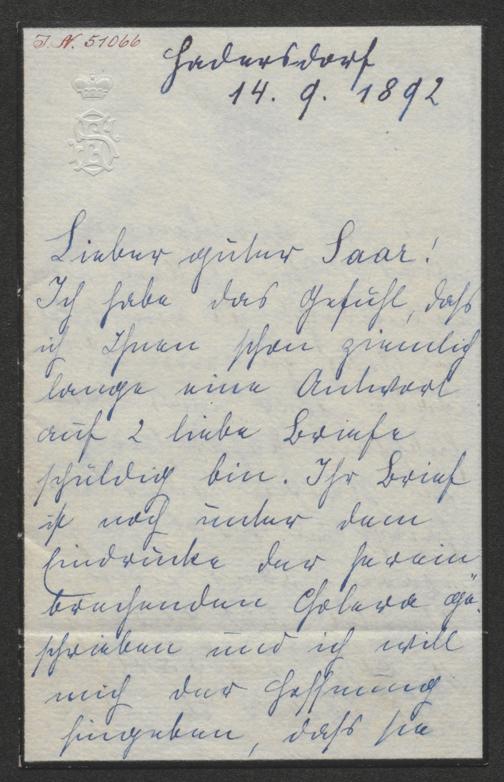 I. N. 51066
Hadersdorf
14. 9. 1892
Lieber guter Saar!
Ich habe das Gefühl, daſs
ich Ihnen schon ziemlich
lange eine Antwort
auf 2 liebe Briefe
schuldig bin. Ihr Brief
ist noch unter dem
Eindrucke der herein
brechenden Cholera ge-
schrieben und ich will
mich der Hoffnung
hingeben, daſs sie